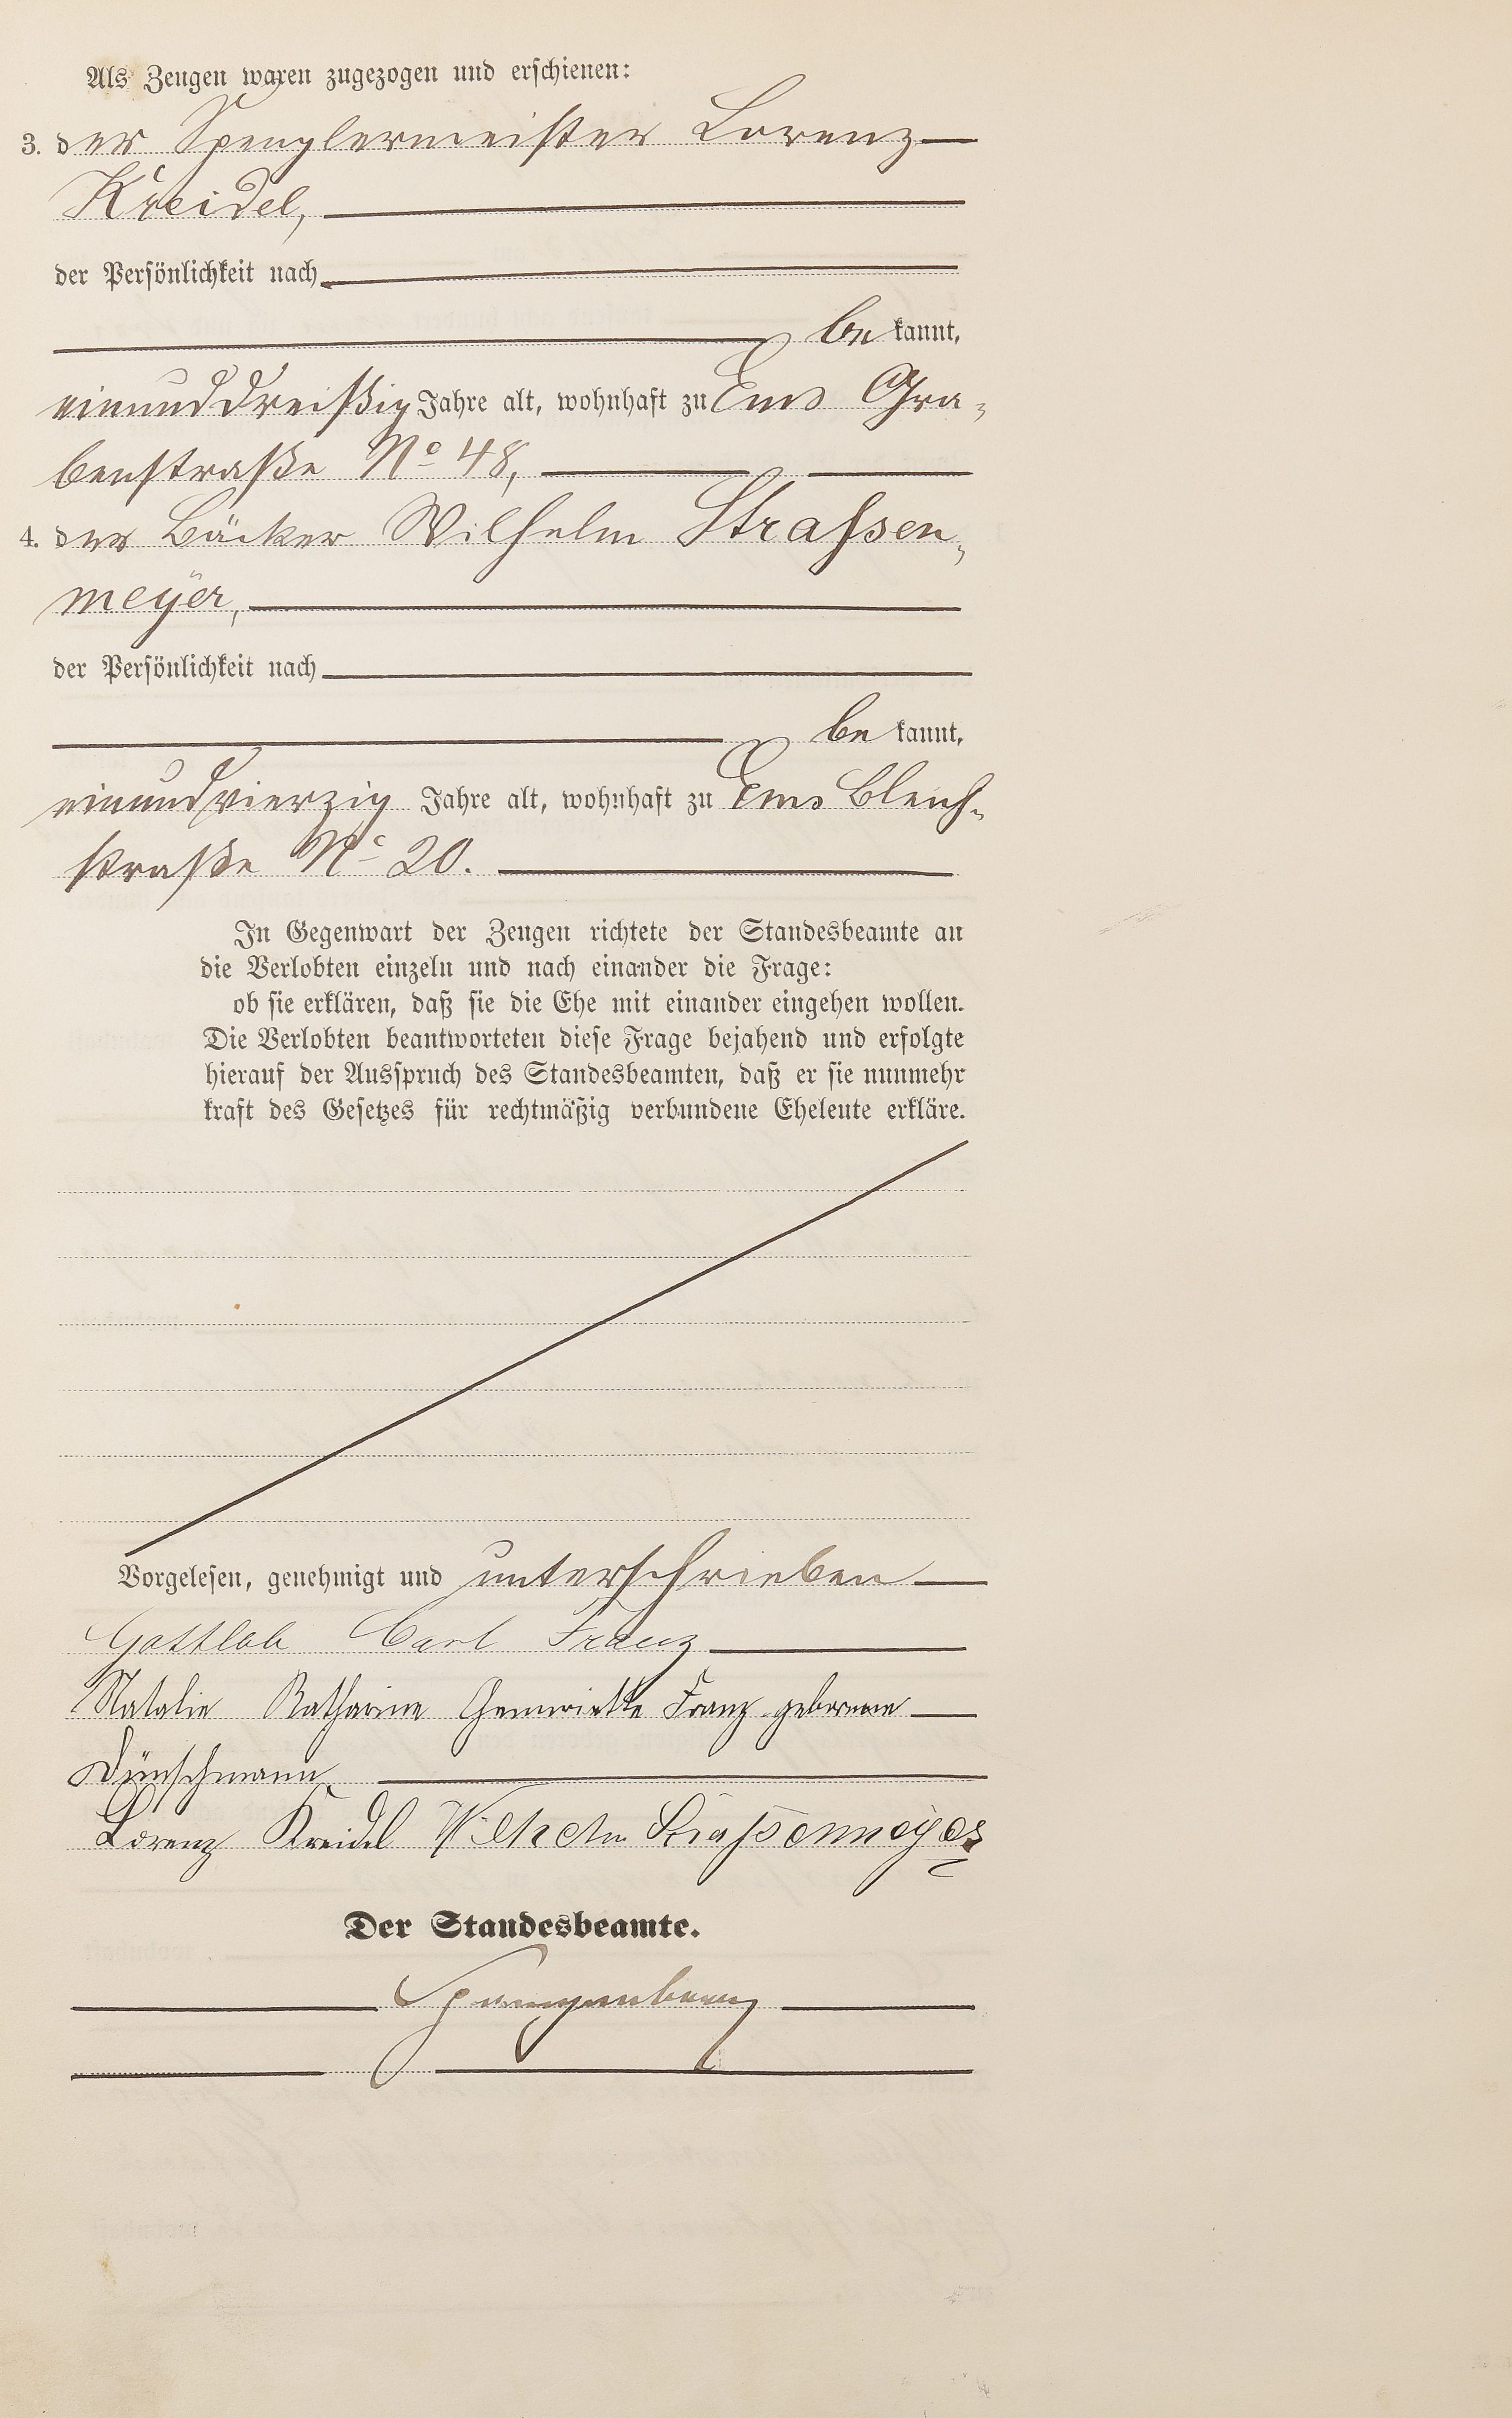 Als Zeugen waren zugezogen und erschienen:
3. der Spenglermeister Lorenz
Kreidel,
der Persönlichkeit nach
be kannt,
einunddreißig Jahre alt, wohnhaft zu Ems Gra-
benstraße No 48,
4. der Bäcker Wilhelm Strassen-
meyer,
der Persönlichkeit nach
be kannt,
einundvierzig Jahre alt, wohnhaft zu Ems Bleich-
straße No 20.
In Gegenwart der Zeugen richtete der Standesbeamte an
die Verlobten einzeln und nach einander die Frage:
ob sie erklären, daß sie die Ehe mit einander eingehen wollen.
Die Verlobten beantworteten diese Frage bejahend und erfolgte
hierauf der Ausspruch des Standesbeamten, daß er sie nunmehr
kraft des Gesetzes für rechtmäßig verbundene Eheleute erkläre.
Vorgelesen, genehmigt und unterschrieben
Gottlob Carl Franz
Natalie Katharine Henriette Franz geborene
Dünschmann
Lorenz Kreidel Wilhelm Strassenmeyer
Der Standesbeamte.
Spangenberg